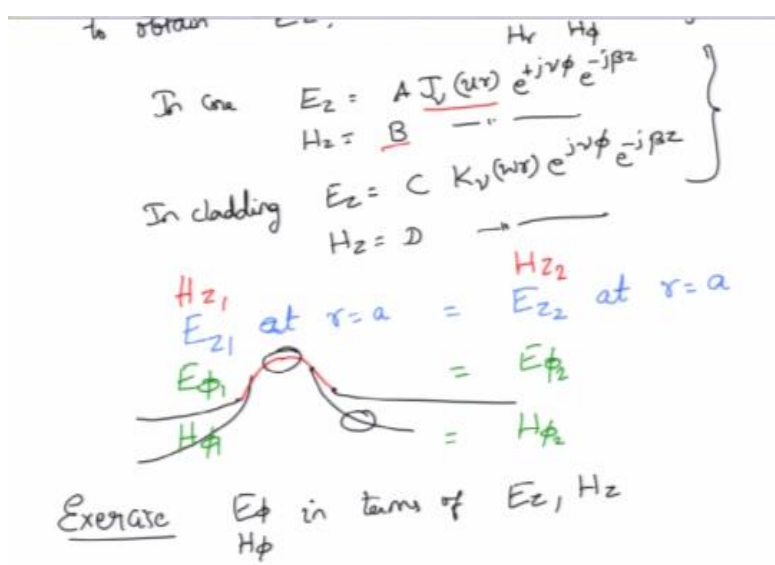 to obtain Ez,
Hr Hφ
In core Ez = A Jν(ur) e^{+jνφ} e^{-jβz}
Hz = B —〃—
In cladding Ez = C Kν(wr) e^{jνφ} e^{-jβz}
Hz = D —〃—
Hz1 Hz2
Ez1 at r=a = Ez2 at r=a
Eφ1 = Eφ2
Hφ1 = Hφ2
Exercise Eφ in terms of Ez, Hz
Hφ